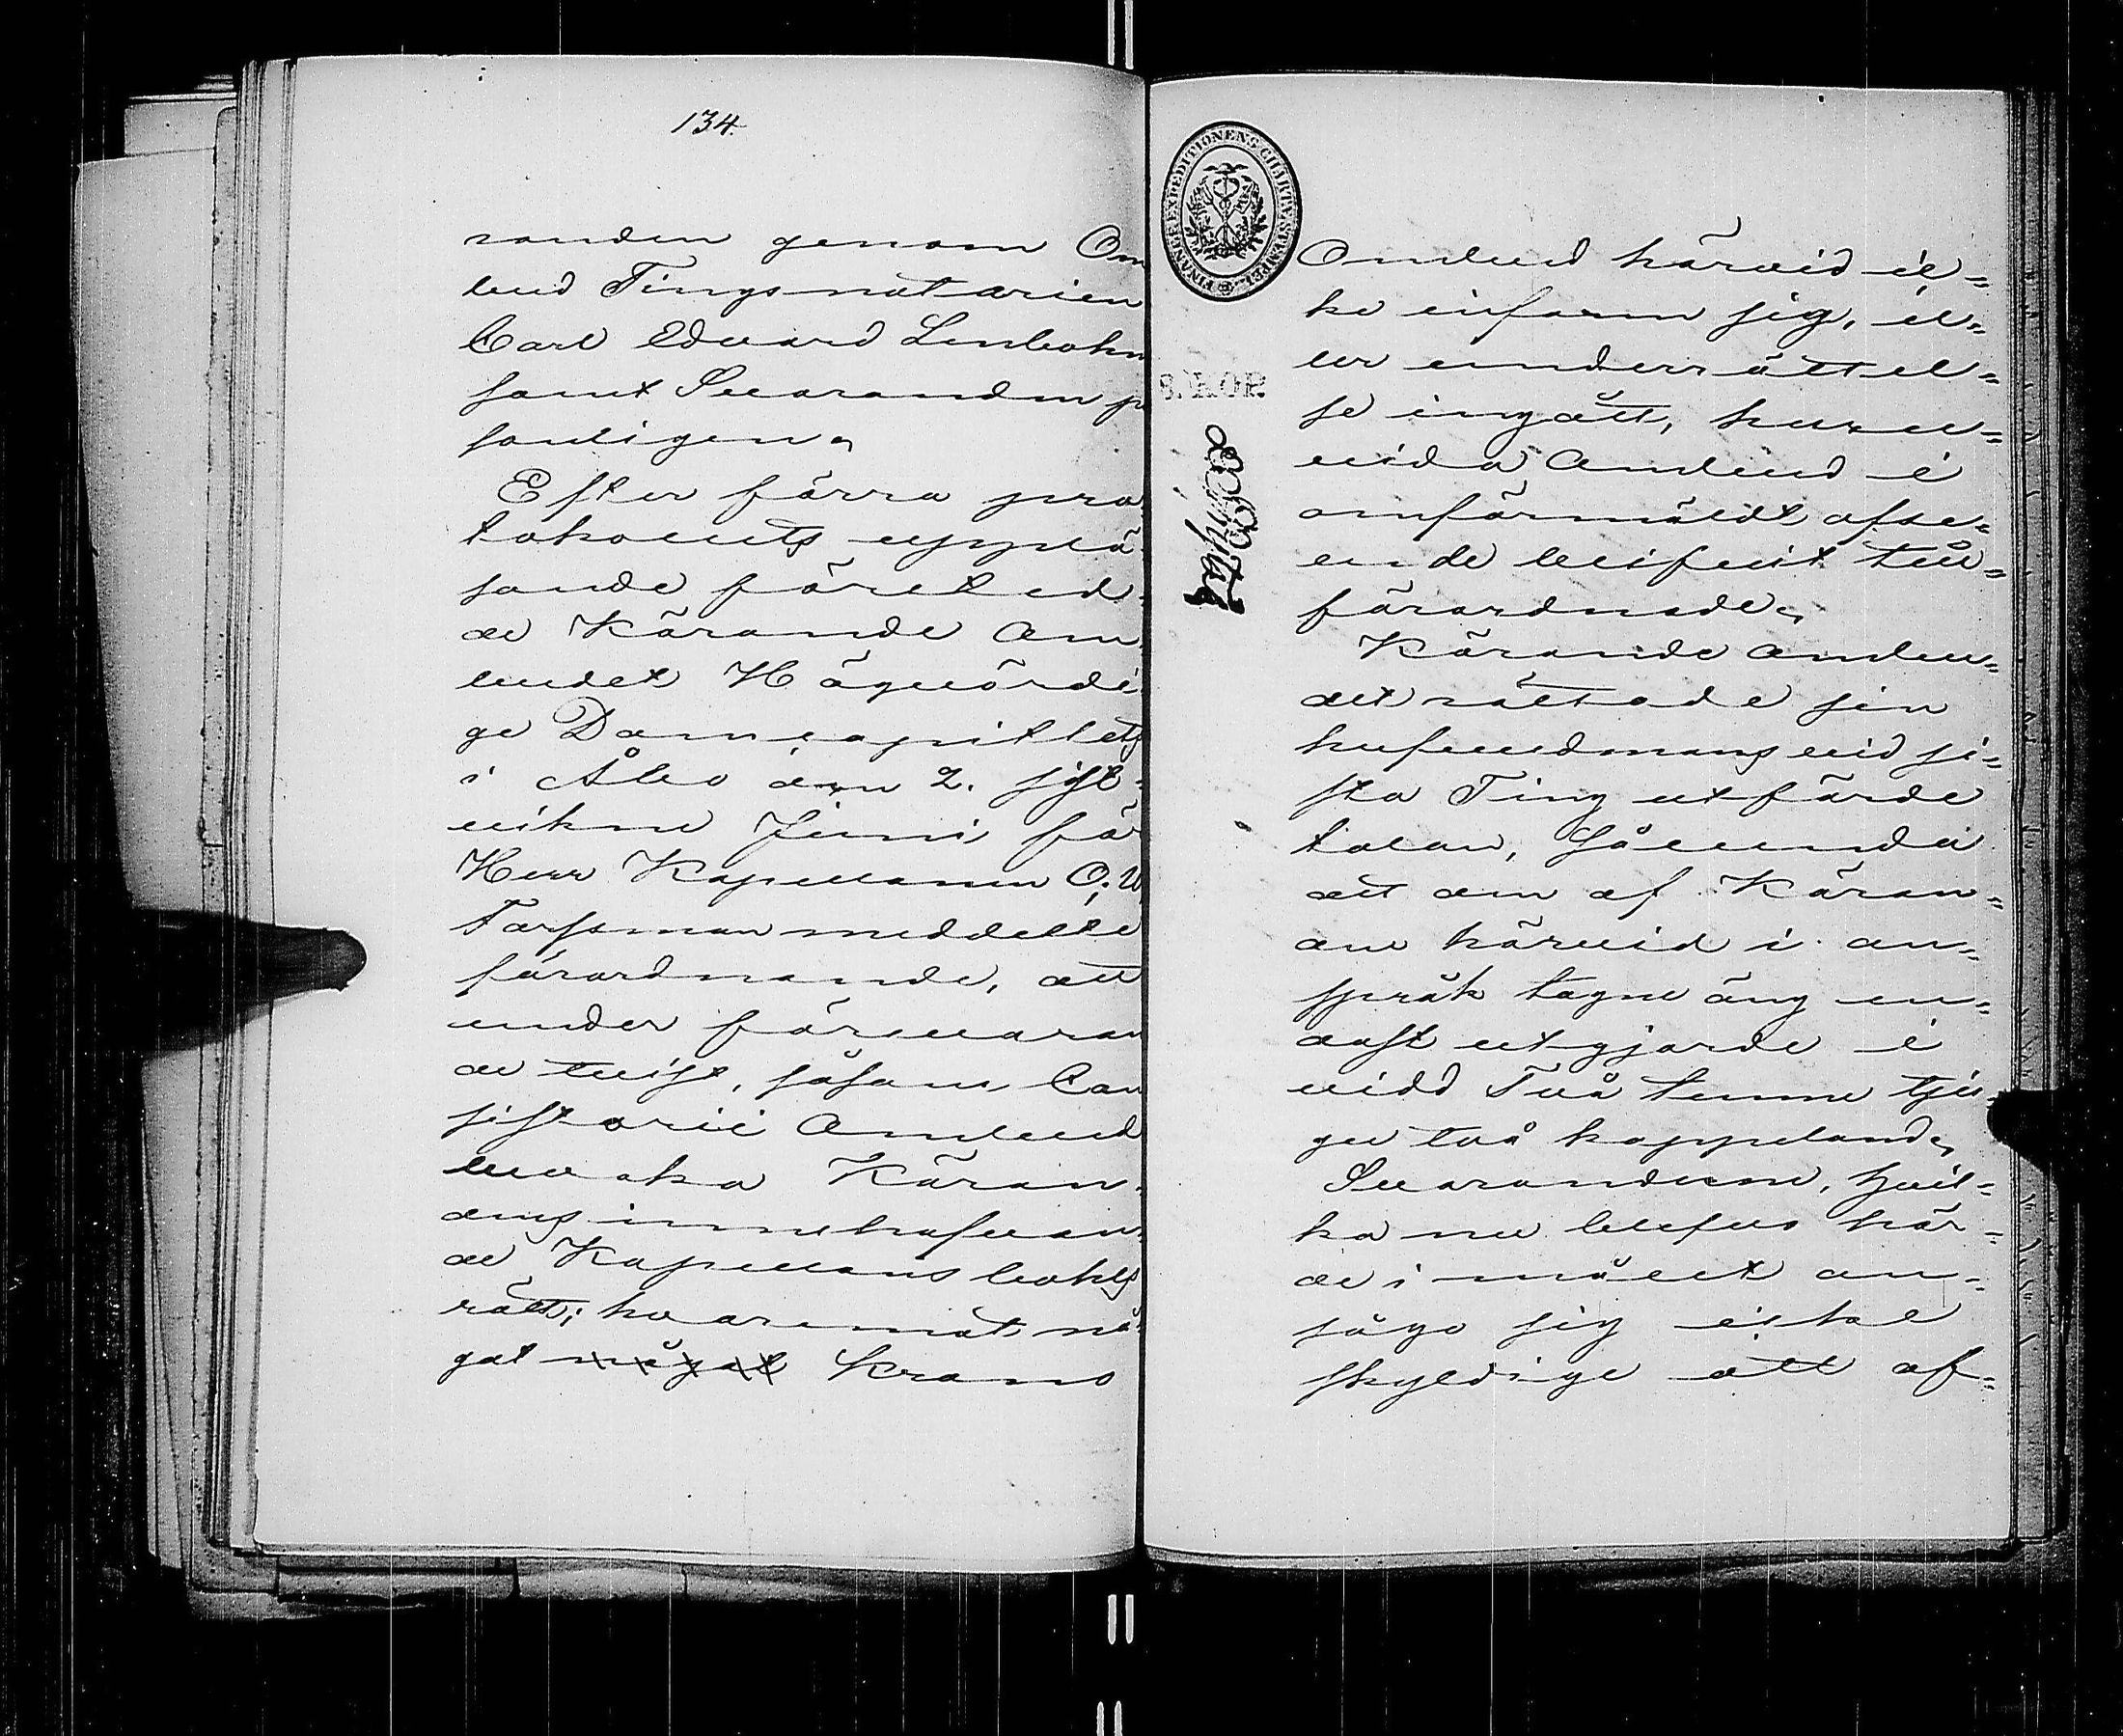 134.
randen genom Om
bud Tingsnotarien
Carl Edvard Lenbohm
samt Svaranden pr
sonligen.
Efter förra pro
tokollets upplä
sande företed
de Kärande Om
budet Högvördi
ge Domcapitlets
i Åbo den 2. sist
vikne Juni för
Herr Kapellanen O. W.
Forssman meddelte
förordnande, att
under förevaran
de tvist, såsom Con
sistorii Ombud
bevaka Käran
dens innehafvan
de Kapellans bohls
rätt; hvaremot nå
got något Krono
FINANCE EXPEDITIONENS CHARTÆ STEMPEL
8. KOP.
Ombud härvid il=
ke infann sig, el=
ler underrättel=
se ingått, huru=
vida Ombud i
omförmäldt afse=
ende blifvit till=
förordnade.
Kärande Ombu=
det rättade sin
hufvudmans vid si=
sta Ting utförde
talan, sålunda
att den af Käran=
den härvid i an=
språk tagne äng en=
dast utgjorde i
vidd Två tunne tju=
gu två kappeland.
Svarandene, hvil=
ka nu blefvo hör=
de i målet an=
sågo sig icke
skyldige att af=